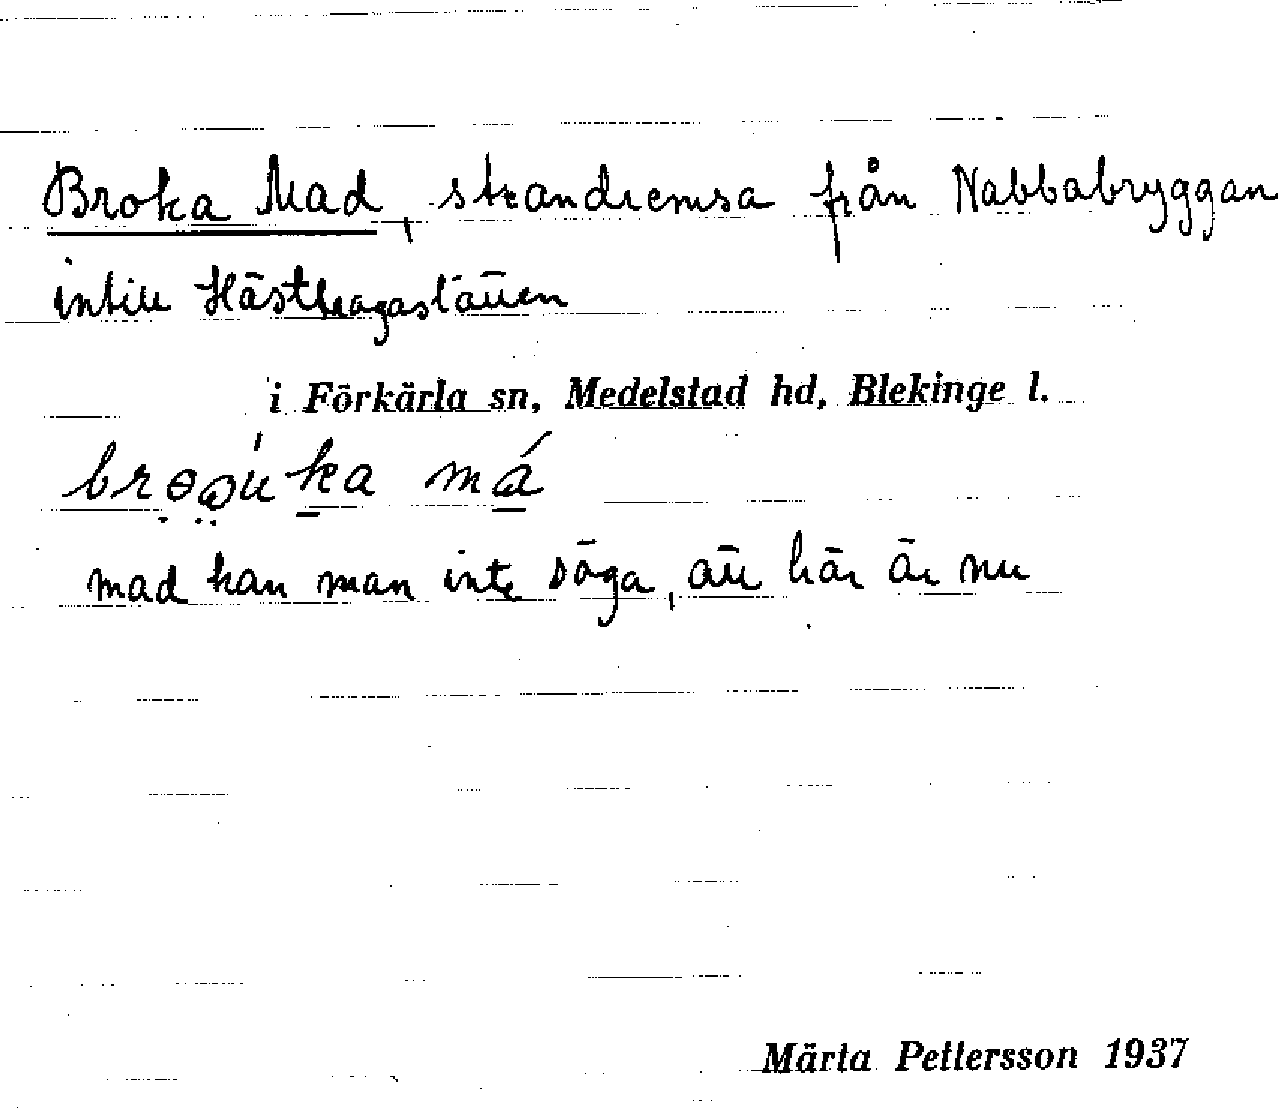 Broka Mad, strandremsa från Nabbabryggan
intill Hästhagaställen
i Förkärla sn, Medelstad hd, Blekinge l.
mad kan man inte säga, att här är nu
Märta Pettersson 1937